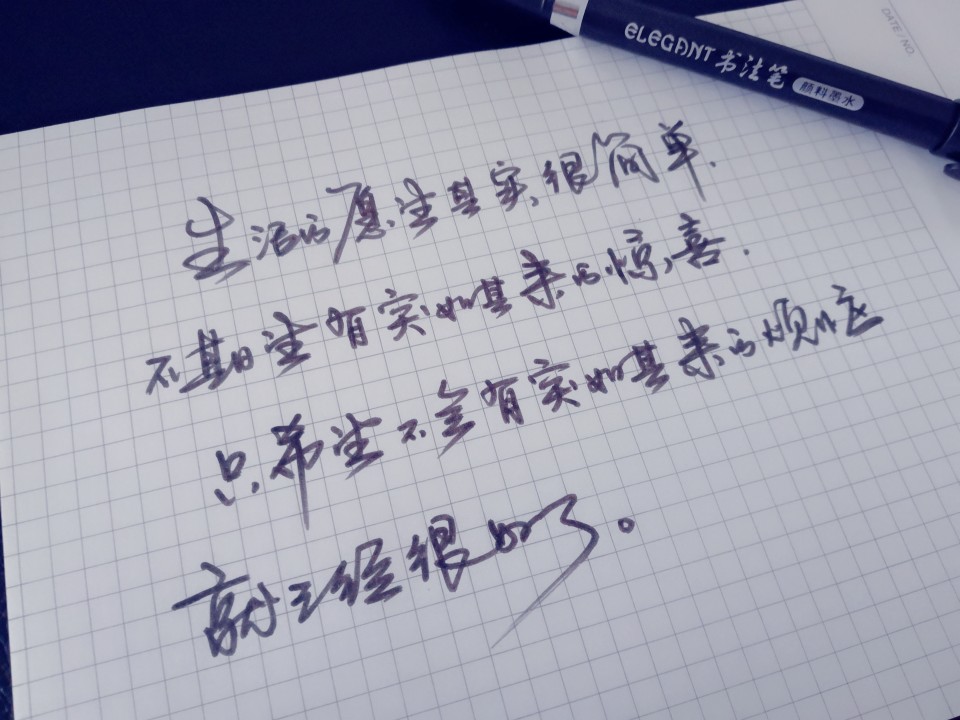 DATE/NO
ELEGANT 书法笔 颜料墨水
生活的愿望其实很简单.
不期望有突如其来的惊喜.
只希望不会有突如其来的烦恼
就已经很好了。